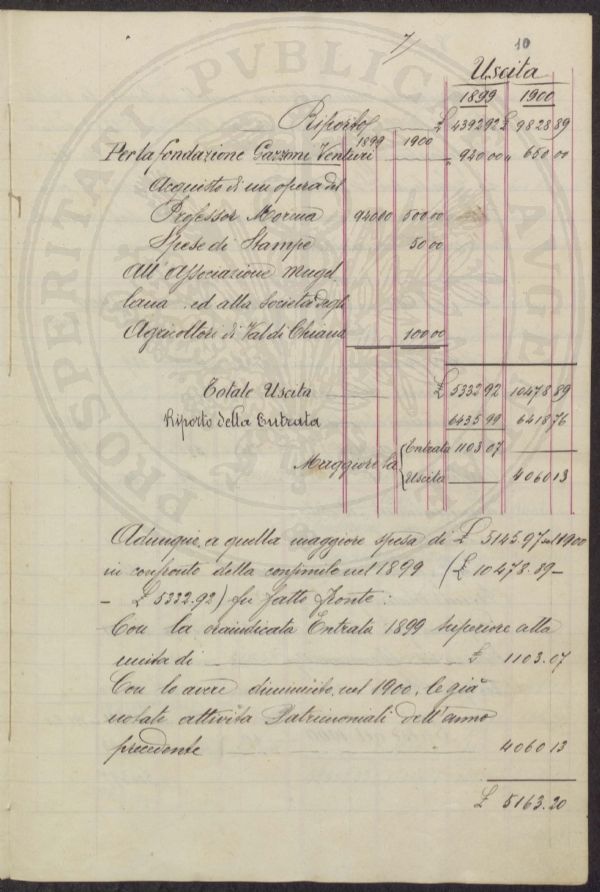 7/ 10
Uscita
1899 1900
Riporto £ 4392 92 £ 9828 89
1899 1900
Per la fondazione Gazzoni Venturi " 940 00 " 650 00
Acquisto di un opera del
Professor Morma 940 00 500 00
Spese di Stampe 50 00
All'Associazione Mugel
lana, ed alla Società degli
Agricoltori di Val di Chiana 100 00
Totale Uscita £ 5332 92 10478 89
Riporto della Entrata 6435 99 6418 76
Maggiore la { Entrata 1103 07
Uscita 4060 13
Adunque a quella maggiore spesa di £ 5145.97 nel 1900
in confronto della consimile nel 1899 (£ 10478.89 –
– £ 5332.92) fu fatto fronte:
Con la oraindicata Entrata 1899 superiore alla
uscita di £ 1103.07
Con lo avere diminuito, nel 1900, le già
notate attività Patrimoniali dell'anno
precedente 4060 13
£ 5163.20
PROSPERITATI PUBLICAE AUGE